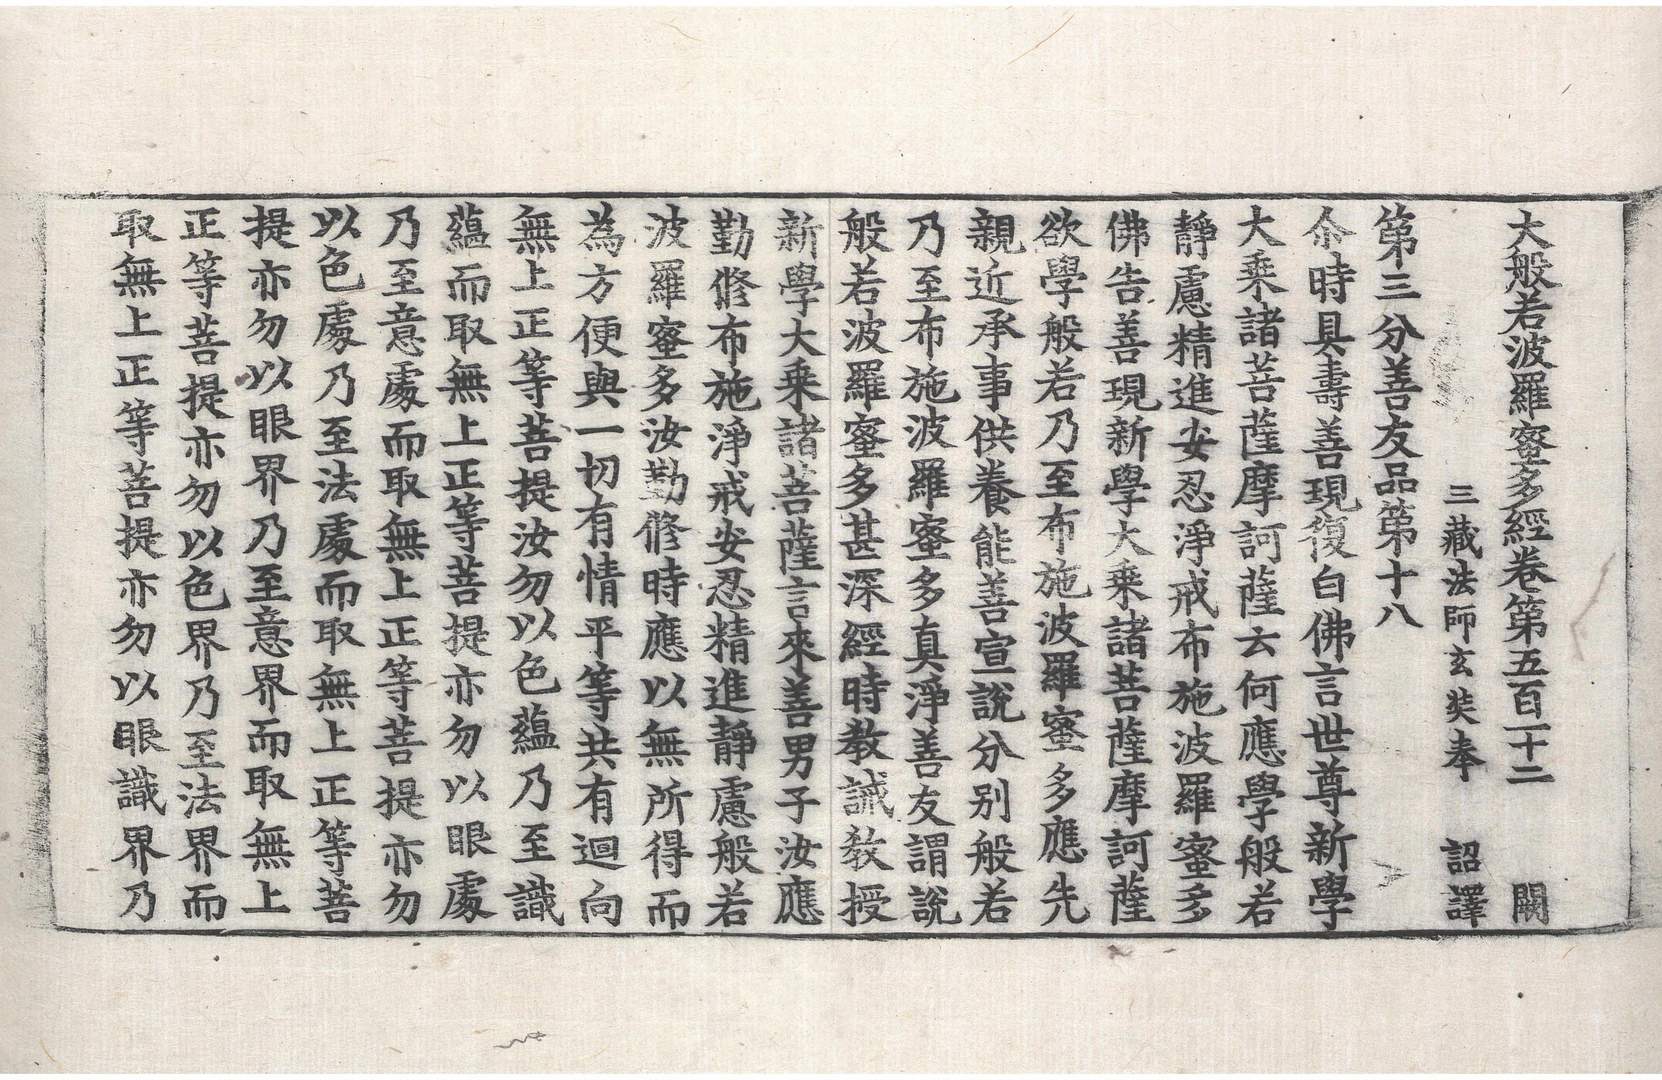 大般若波羅蜜多經卷第五百一十二　闕
三藏法師玄奘奉　詔譯
第三分善友品第十八
尒時具壽善現復白佛言世尊新學
大乘諸菩薩摩訶薩云何應學般若
靜慮精進安忍淨戒布施波羅蜜多
佛告善現新學大乘諸菩薩摩訶薩
欲學般若乃至布施波羅蜜多應先
親近承事供養能善宣說分別般若
乃至布施波羅蜜多真淨善友謂說
般若波羅蜜多甚深經時教誡教授
新學大乘諸菩薩言來善男子汝應
勤修布施淨戒安忍精進靜慮般若
波羅蜜多汝勤修時應以無所得而
為方便與一切有情平等共有迴向
無上正等菩提汝勿以色蘊乃至識
蘊而取無上正等菩提亦勿以眼處
乃至意處而取無上正等菩提亦勿
以色處乃至法處而取無上正等菩
提亦勿以眼界乃至意界而取無上
正等菩提亦勿以色界乃至法界而
取無上正等菩提亦勿以眼識界乃